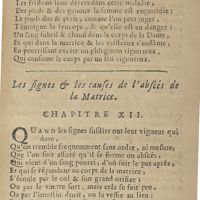 Les frissons sont divers dans cette maladie,
Des pieds & des genoux la femme est engourdie:
Le pouls dur & petit, comme l'on peut juger,
Témoigne la syncope, & qu'elle est en danger:
Un sang subtil & chaud dans le corps de la Dame,
Et qui dans la matrice & les vaisseaux s'enflame,
En pourrissant excite un phlegmon rigoureux,
Qui consume le corps par un feu vigoureux.
Les signes & les causes de l'abscés de
la Matrice.
CHAPITRE XII.
QUAND les signes susdits ont leur vigueur qui
dure,
Qu'on tremble frequemment sans ordre, ni mesure;
Que l'on soit assuré qu'il se forme un abscés,
Qui vient d'un sang pourri, d'où suit le pus aprés;
Et qui se répandent au corps de la matrice,
S'écoule par le col & son grand orifice:
Ou par le ventre sort, mais cela se fait peu,
Ou par l'intestin droit, ou la vessie au lieu: